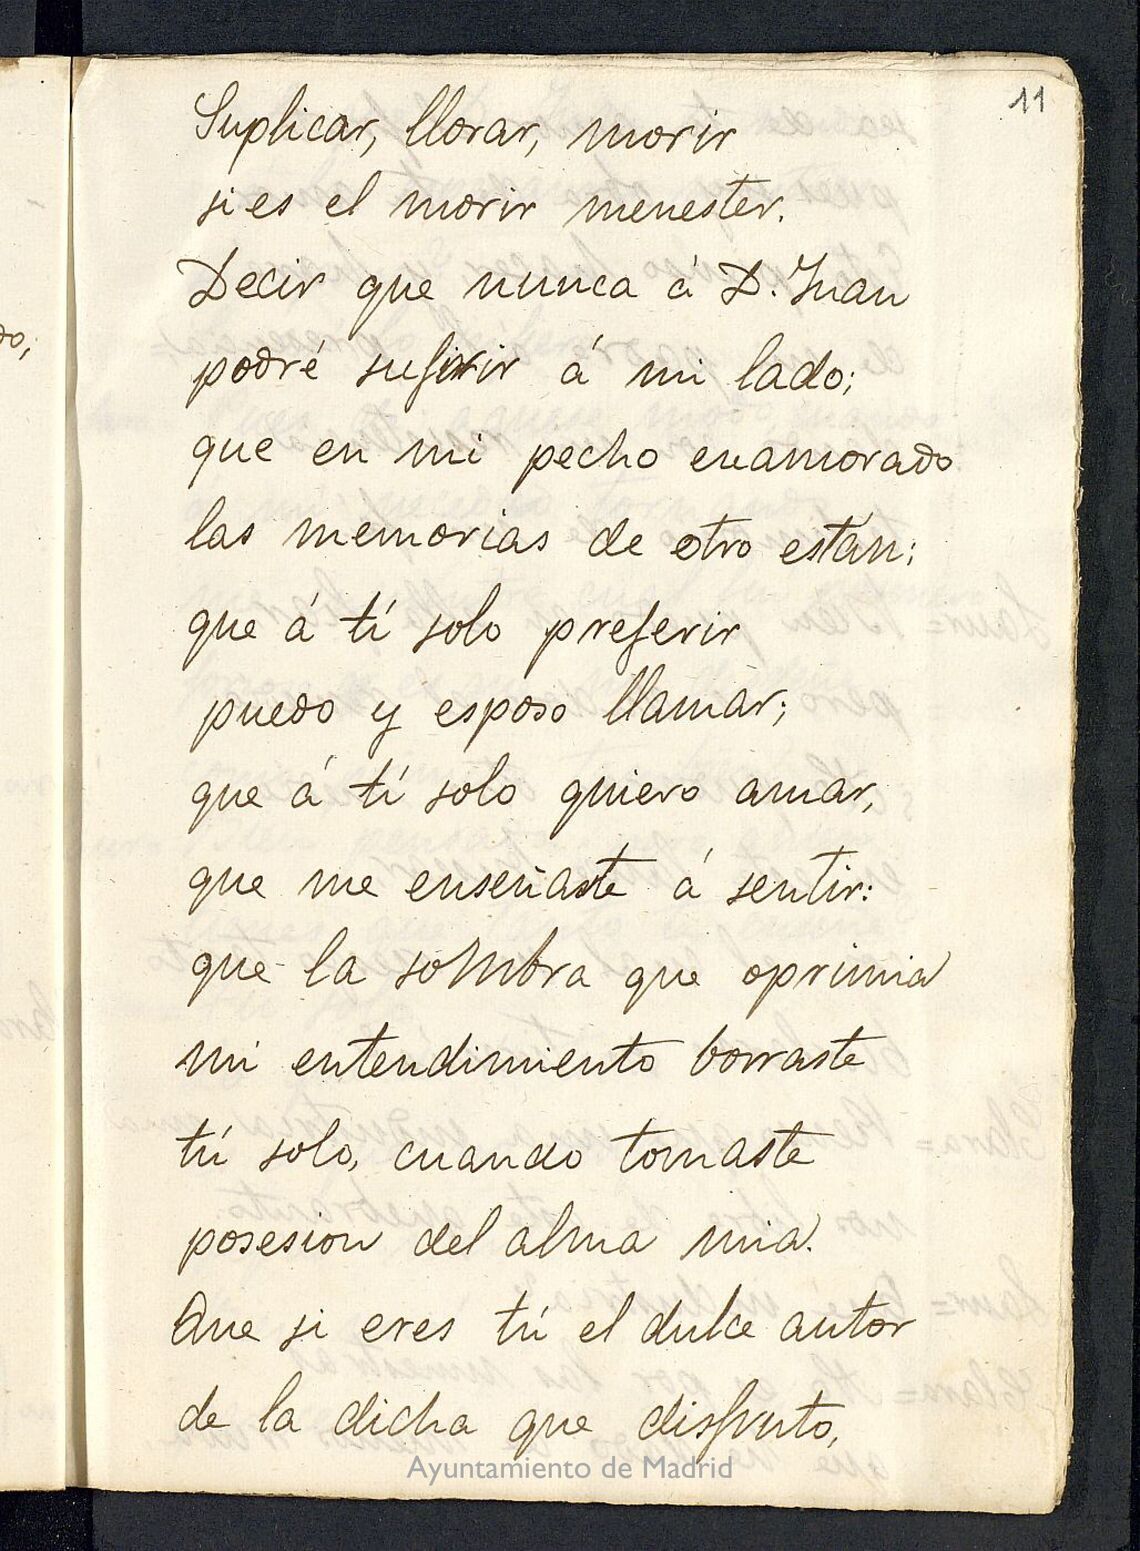 11
Suplicar, llorar, morir
si es el morir menester.
Decir que nunca á D. Juan
podré sufrir á mi lado;
que en mi pecho enamorado
las memorias de otro están;
que á tí solo preferir
puedo y esposo llamar;
que á tí solo quiero amar,
que me enseñaste á sentir:
que la sombra que oprimia
mi entendimiento borraste
tú solo, cuando tomaste
posesion del alma mia.
Que si eres tú el dulce autor
de la dicha que disfruto,
do,
Ayuntamiento de Madrid